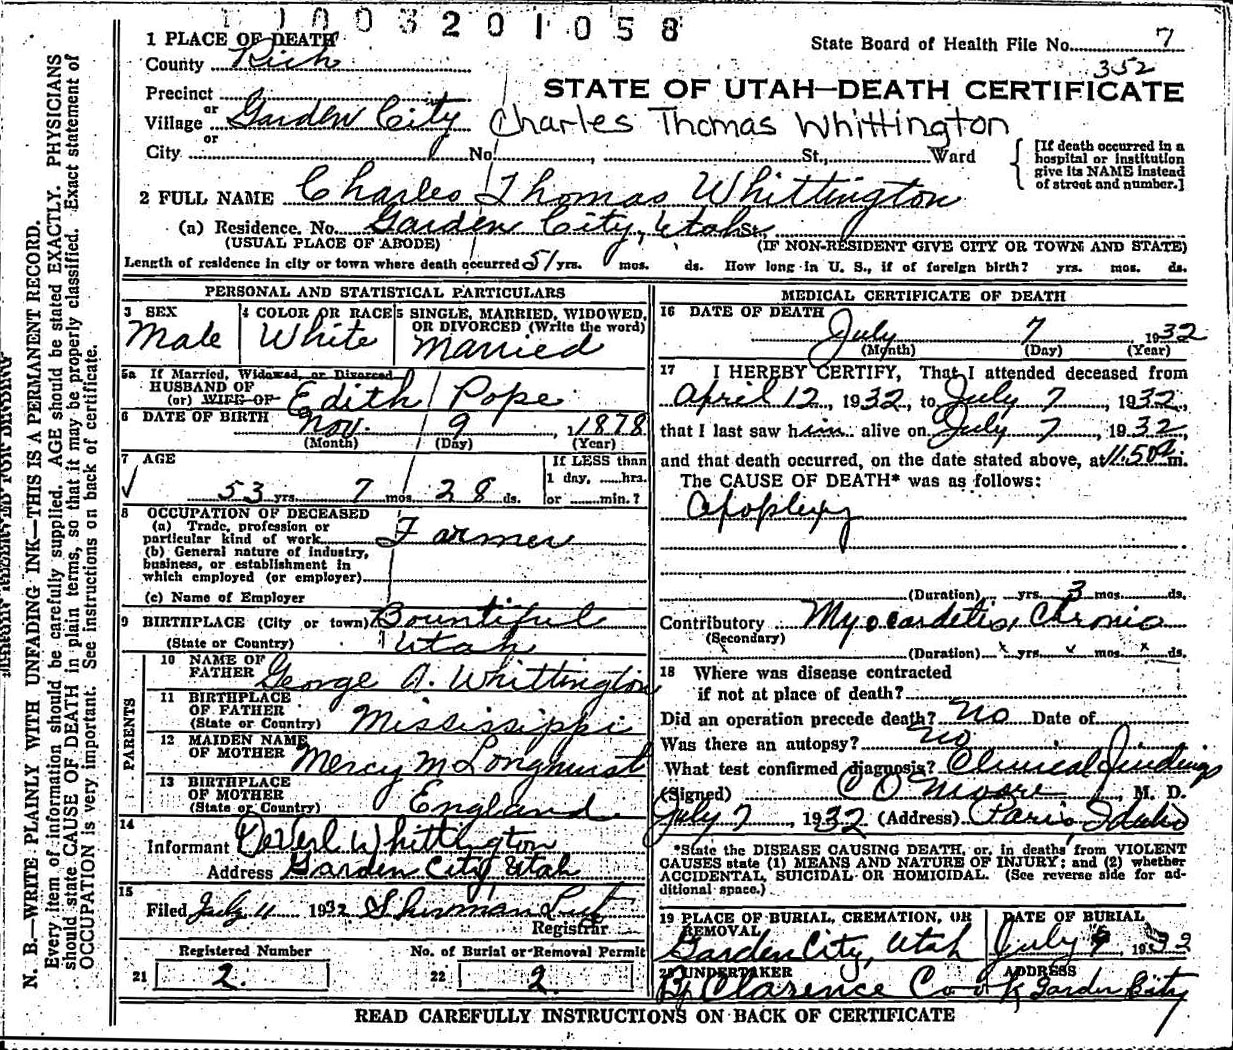 1003201058
State Board of Health File No. 7
352
1 PLACE OF DEATH
County Rich
STATE OF UTAH—DEATH CERTIFICATE
Precinct
or
Village Garden City Charles Thomas Whittington
or
City No. , St., Ward
[If death occurred in a hospital or institution give its NAME instead of street and number.]
2 FULL NAME Charles Thomas Whittington
(a) Residence. No. Garden City, Utah St.,
(USUAL PLACE OF ABODE) (IF NON-RESIDENT GIVE CITY OR TOWN AND STATE)
Length of residence in city or town where death occurred 51 yrs. mos. ds. How long in U. S., if of foreign birth? yrs. mos. ds.
PERSONAL AND STATISTICAL PARTICULARS
3 SEX
Male
4 COLOR OR RACE
White
5 SINGLE, MARRIED, WIDOWED, OR DIVORCED (Write the word)
Married
5a If Married, Widowed, or Divorced
HUSBAND OF
(or) WIFE OF Edith Pope
6 DATE OF BIRTH Nov. 9, 1878
(Month) (Day) (Year)
7 AGE
53 yrs. 7 mos. 28 ds.
If LESS than
1 day, hrs.
or min.?
8 OCCUPATION OF DECEASED
(a) Trade, profession or
particular kind of work Farmer
(b) General nature of industry,
business, or establishment in
which employed (or employer)
(c) Name of Employer
9 BIRTHPLACE (City or town) Bountiful
(State or Country) Utah
PARENTS
10 NAME OF
FATHER George A. Whittington
11 BIRTHPLACE
OF FATHER
(State or Country) Mississippi
12 MAIDEN NAME
OF MOTHER Mercy M Longhurst
13 BIRTHPLACE
OF MOTHER
(State or Country) England
14
Informant DeVerl Whittington
Address Garden City, Utah
15
Filed July 11 1932 Sherman
Registrar
Registered Number
21 2.
No. of Burial or Removal Permit
22 2.
MEDICAL CERTIFICATE OF DEATH
16 DATE OF DEATH
July 7 1932
(Month) (Day) (Year)
17 I HEREBY CERTIFY, That I attended deceased from
April 12, 1932, to July 7, 1932,
that I last saw him alive on July 7, 1932,
and that death occurred, on the date stated above, at 11.50a m.
The CAUSE OF DEATH* was as follows:
Apoplexy
(Duration) yrs. 3 mos. ds.
Contributory Myocardetis, Chronic
(Secondary)
(Duration) x yrs. v mos. x ds.
18 Where was disease contracted
if not at place of death?
Did an operation precede death? No Date of
Was there an autopsy? No
What test confirmed diagnosis? Clinical Findings
(Signed) C O Moore, M. D.
July 7, 1932 (Address) Paris Idaho
*State the DISEASE CAUSING DEATH, or, in deaths from VIOLENT
CAUSES state (1) MEANS AND NATURE OF INJURY; and (2) whether
ACCIDENTAL, SUICIDAL OR HOMICIDAL. (See reverse side for ad-
ditional space.)
19 PLACE OF BURIAL, CREMATION, OR
REMOVAL
Garden City, Utah
DATE OF BURIAL
July 9 1932
20 UNDERTAKER
By Clarence Cook
ADDRESS
Garden City
READ CAREFULLY INSTRUCTIONS ON BACK OF CERTIFICATE
MARGIN RESERVED FOR BINDING
N. B.—WRITE PLAINLY WITH UNFADING INK—THIS IS A PERMANENT RECORD.
Every item of information should be carefully supplied. AGE should be stated EXACTLY. PHYSICIANS
should state CAUSE OF DEATH in plain terms, so that it may be properly classified. Exact statement of
OCCUPATION is very important. See instructions on back of certificate.